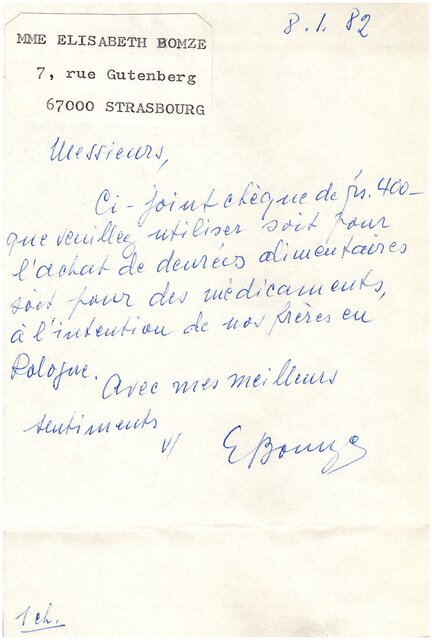 8.1.82
MME ELISABETH BOMZE
7, rue Gutenberg
67000 STRASBOURG
Messieurs,
Ci-joint chèque de frs. 400-
que veuillez utiliser soit pour
l'achat de denrées alimentaires
soit pour des médicaments,
à l'intention de nos frères en
Pologne.
Avec mes meilleurs
sentiments
EBomze
1 ch.